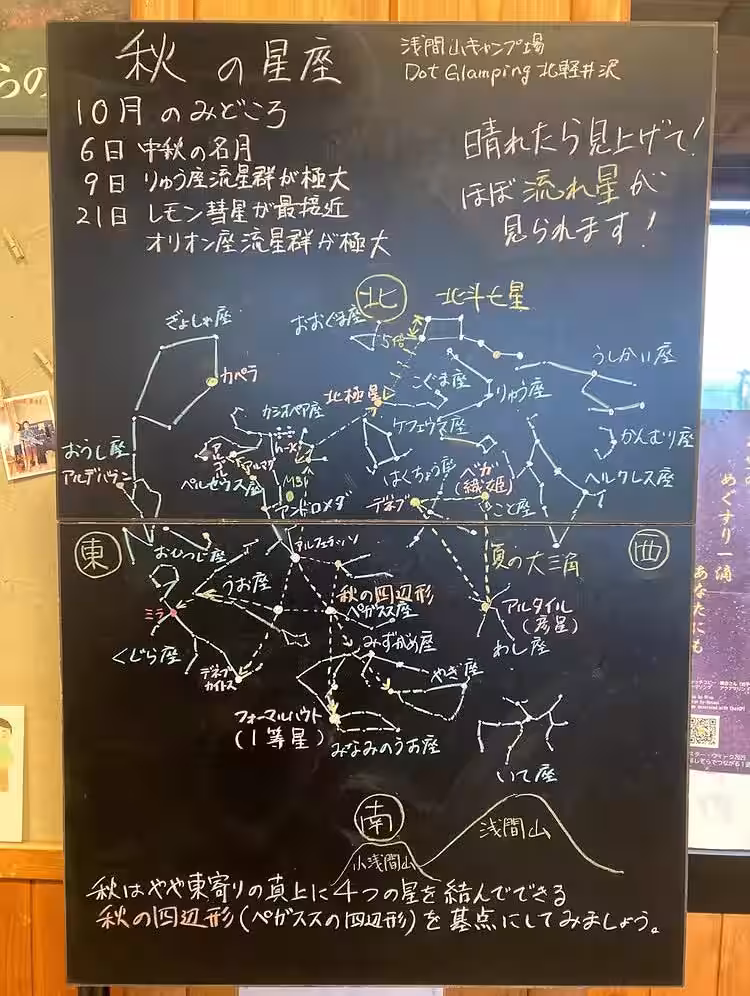 秋の星座
浅間山キャンプ場
Dot Glamping 北軽井沢
10月のみどころ
6日 中秋の名月
9日 りゅう座流星群が極大
21日 レモン彗星が最接近
オリオン座流星群が極大
晴れたら見上げて!
ほぼ流れ星が
見られます!
北
北斗七星
ぎょしゃ座
おおぐま座
5倍
カペラ
北極星
こぐま座
りゅう座
うしかい座
カシオペア座
ケフェウス座
かんむり座
おうし座
アルデバラン
h-χ
ペルセウス座
M31
アンドロメダ
はくちょう座
デネブ
ベガ
(織姫)
こと座
ヘルクレス座
東
西
おひつじ座
アルフェラッツ
夏の大三角
うお座
秋の四辺形
ペガスス座
アルタイル
(彦星)
わし座
ミラ
くじら座
デネブ
カイトス
みずがめ座
やぎ座
フォーマルハウト
(1等星)
みなみのうお座
いて座
南
小浅間山
浅間山
秋はやや東寄りの真上に4つの星を結んでできる
秋の四辺形(ペガススの四辺形)を基点にしてみましょう。
めぐすり一滴
あなたにも